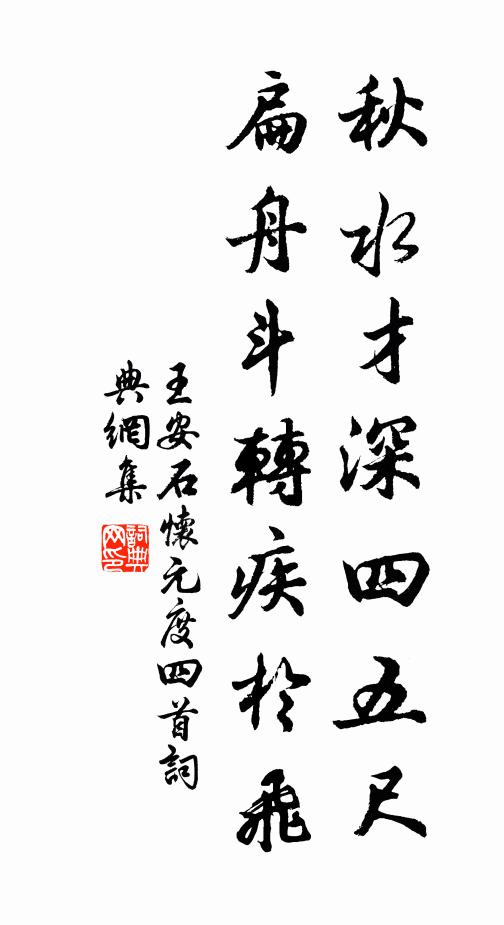 秋水才深四五尺
扁舟斗轉疾於飛
王安石懷元度四首詞
典網集
詞典
网印